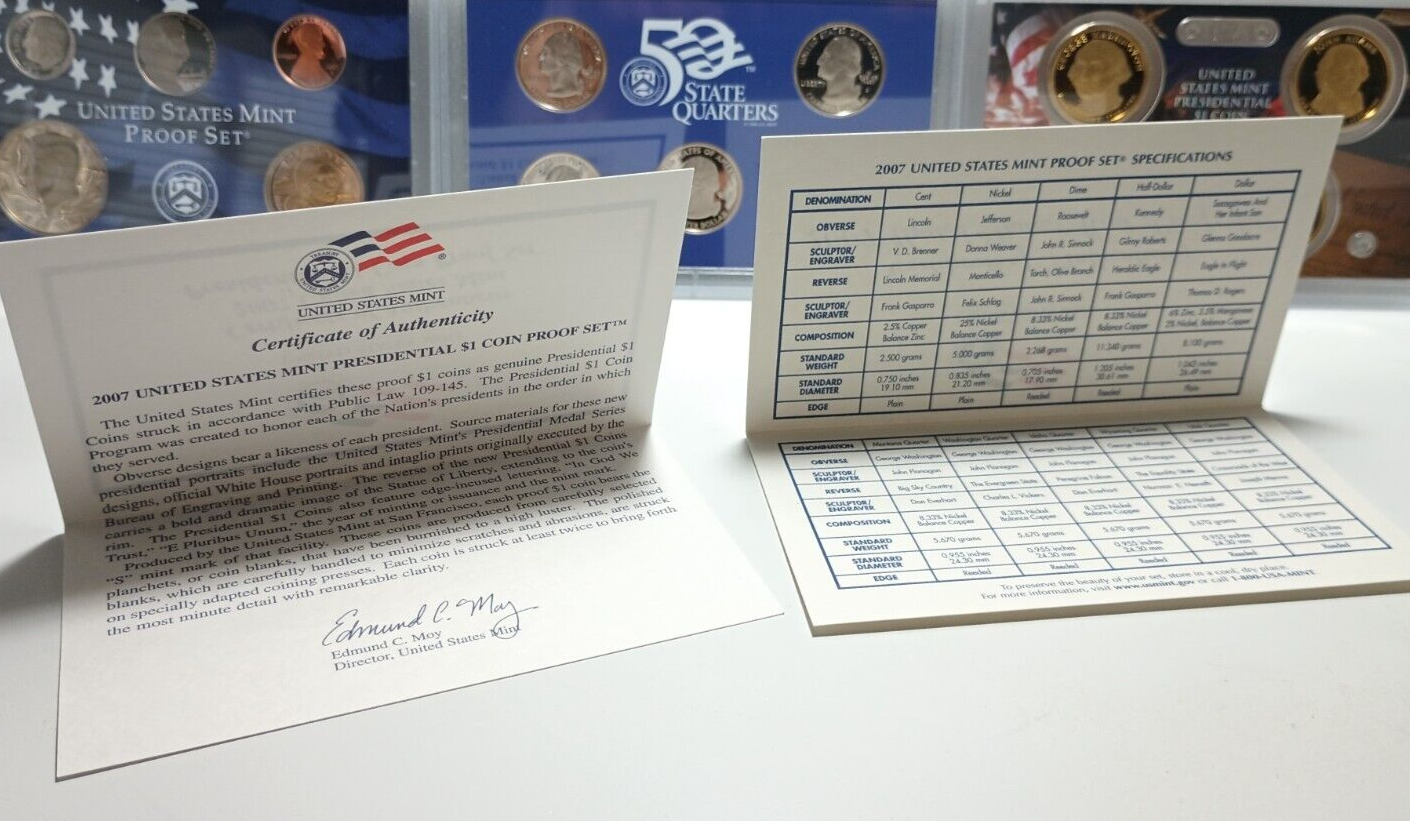 UNITED STATES MINT
PROOF SET®
50
STATE
QUARTERS
UNITED
STATES MINT
PRESIDENTIAL
$1 COIN
GEORGE WASHINGTON
JOHN ADAMS
UNITED STATES MINT
Certificate of Authenticity
2007 UNITED STATES MINT PRESIDENTIAL $1 COIN PROOF SET™
The United States Mint certifies these proof $1 coins as genuine Presidential $1
Coins struck in accordance with Public Law 109-145. The Presidential $1 Coin
Program was created to honor each of the Nation's presidents in the order in which
they served.
Obverse designs bear a likeness of each president. Source materials for these new
presidential portraits include the United States Mint's Presidential Medal Series
designs, official White House portraits and intaglio prints originally executed by the
Bureau of Engraving and Printing. The reverse of the new Presidential $1 Coins
carries a bold and dramatic image of the Statue of Liberty, extending to the coin's
rim. The Presidential $1 Coins also feature edge-incused lettering, "In God We
Trust," "E Pluribus Unum," the year of minting or issuance and the mint mark.
Produced by the United States Mint at San Francisco, each proof $1 coin bears the
"S" mint mark of that facility. These coins are produced from carefully selected
planchets, or coin blanks, that have been burnished to a high luster. The polished
blanks, which are carefully handled to minimize scratches and abrasions, are struck
on specially adapted coining presses. Each coin is struck at least twice to bring forth
the most minute detail with remarkable clarity.
Edmund C. Moy
Edmund C. Moy
Director, United States Mint
2007 UNITED STATES MINT PROOF SET® SPECIFICATIONS
DENOMINATION Cent Nickel Dime Half-Dollar Dollar
OBVERSE Lincoln Jefferson Roosevelt Kennedy Sacagawea And Her Infant Son
SCULPTOR/ENGRAVER V. D. Brenner Donna Weaver John R. Sinnock Gilroy Roberts Glenna Goodacre
REVERSE Lincoln Memorial Monticello Torch, Olive Branch Heraldic Eagle Eagle in Flight
SCULPTOR/ENGRAVER Frank Gasparro Felix Schlag John R. Sinnock Frank Gasparro Thomas D. Rogers
COMPOSITION 2.5% Copper Balance Zinc 25% Nickel Balance Copper 8.33% Nickel Balance Copper 8.33% Nickel Balance Copper 6% Zinc, 3.5% Manganese 2% Nickel, Balance Copper
STANDARD WEIGHT 2.500 grams 5.000 grams 2.268 grams 11.340 grams 8.100 grams
STANDARD DIAMETER 0.750 inches 19.10 mm 0.835 inches 21.20 mm 0.705 inches 17.90 mm 1.205 inches 30.61 mm 1.043 inches 26.49 mm
EDGE Plain Plain Reeded Reeded Plain
DENOMINATION Montana Quarter Washington Quarter Idaho Quarter Wyoming Quarter Utah Quarter
OBVERSE George Washington George Washington George Washington George Washington George Washington
SCULPTOR/ENGRAVER John Flanagan John Flanagan John Flanagan John Flanagan John Flanagan
REVERSE Big Sky Country The Evergreen State Peregrine Falcon
SCULPTOR/ENGRAVER Don Everhart Charles L. Vickers Don Everhart Norman E. Nemeth
COMPOSITION 8.33% Nickel Balance Copper 8.33% Nickel Balance Copper 8.33% Nickel Balance Copper 8.33% Nickel Balance Copper 8.33% Nickel Balance Copper
STANDARD WEIGHT 5.670 grams 5.670 grams 5.670 grams 5.670 grams 5.670 grams
STANDARD DIAMETER 0.955 inches 24.30 mm 0.955 inches 24.30 mm 0.955 inches 24.30 mm 0.955 inches 24.30 mm 0.955 inches 24.30 mm
EDGE Reeded Reeded Reeded Reeded Reeded
To preserve the beauty of your set, store in a cool, dry place.
For more information, visit www.usmint.gov or call 1-800-USA-MINT